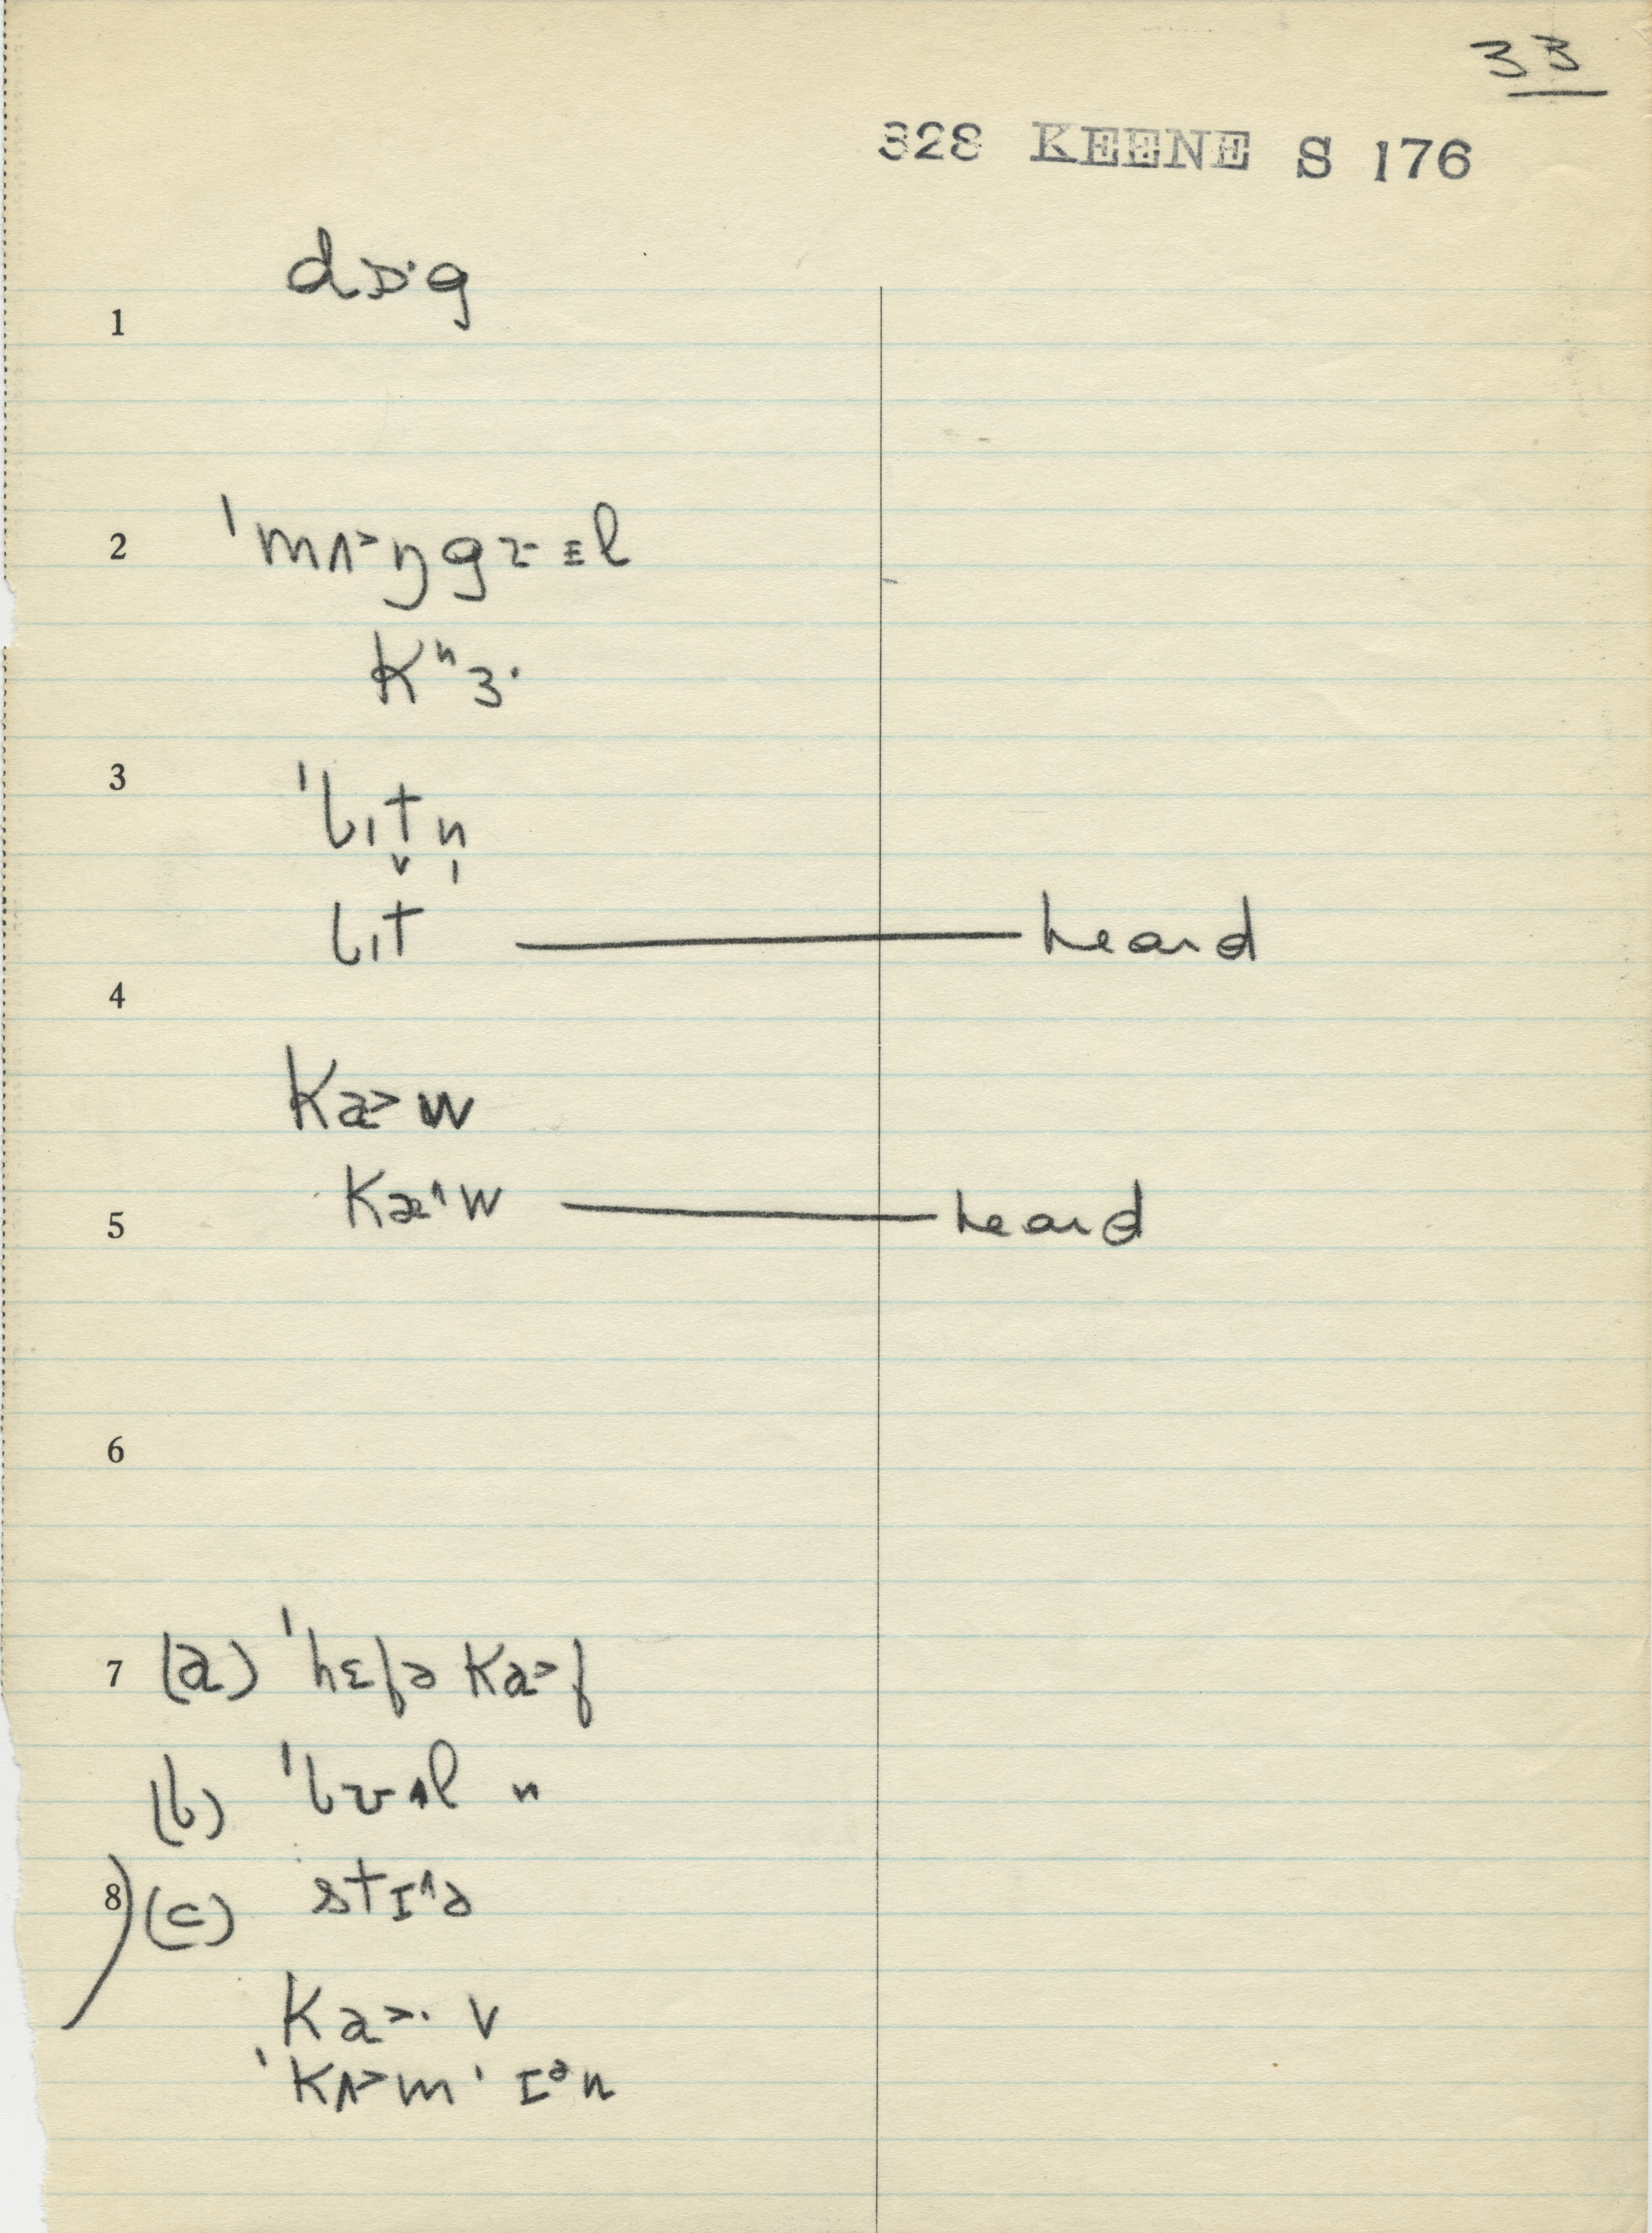 33
328 KEENE S 176
1 dɒ·g
2 ˈmʌ˃ŋgɹ
kʰɜ·
3 ˈbɪt̬n̩
bɪt — heard
4
ka˃w
5 kæ^w — heard
6
7 (a) ˈhɛfə ka˃f
(b) ˈbʊ
8 (c) stɪ^ə
ka˃· v
ˈkʌ˃m ˈɪᵊn